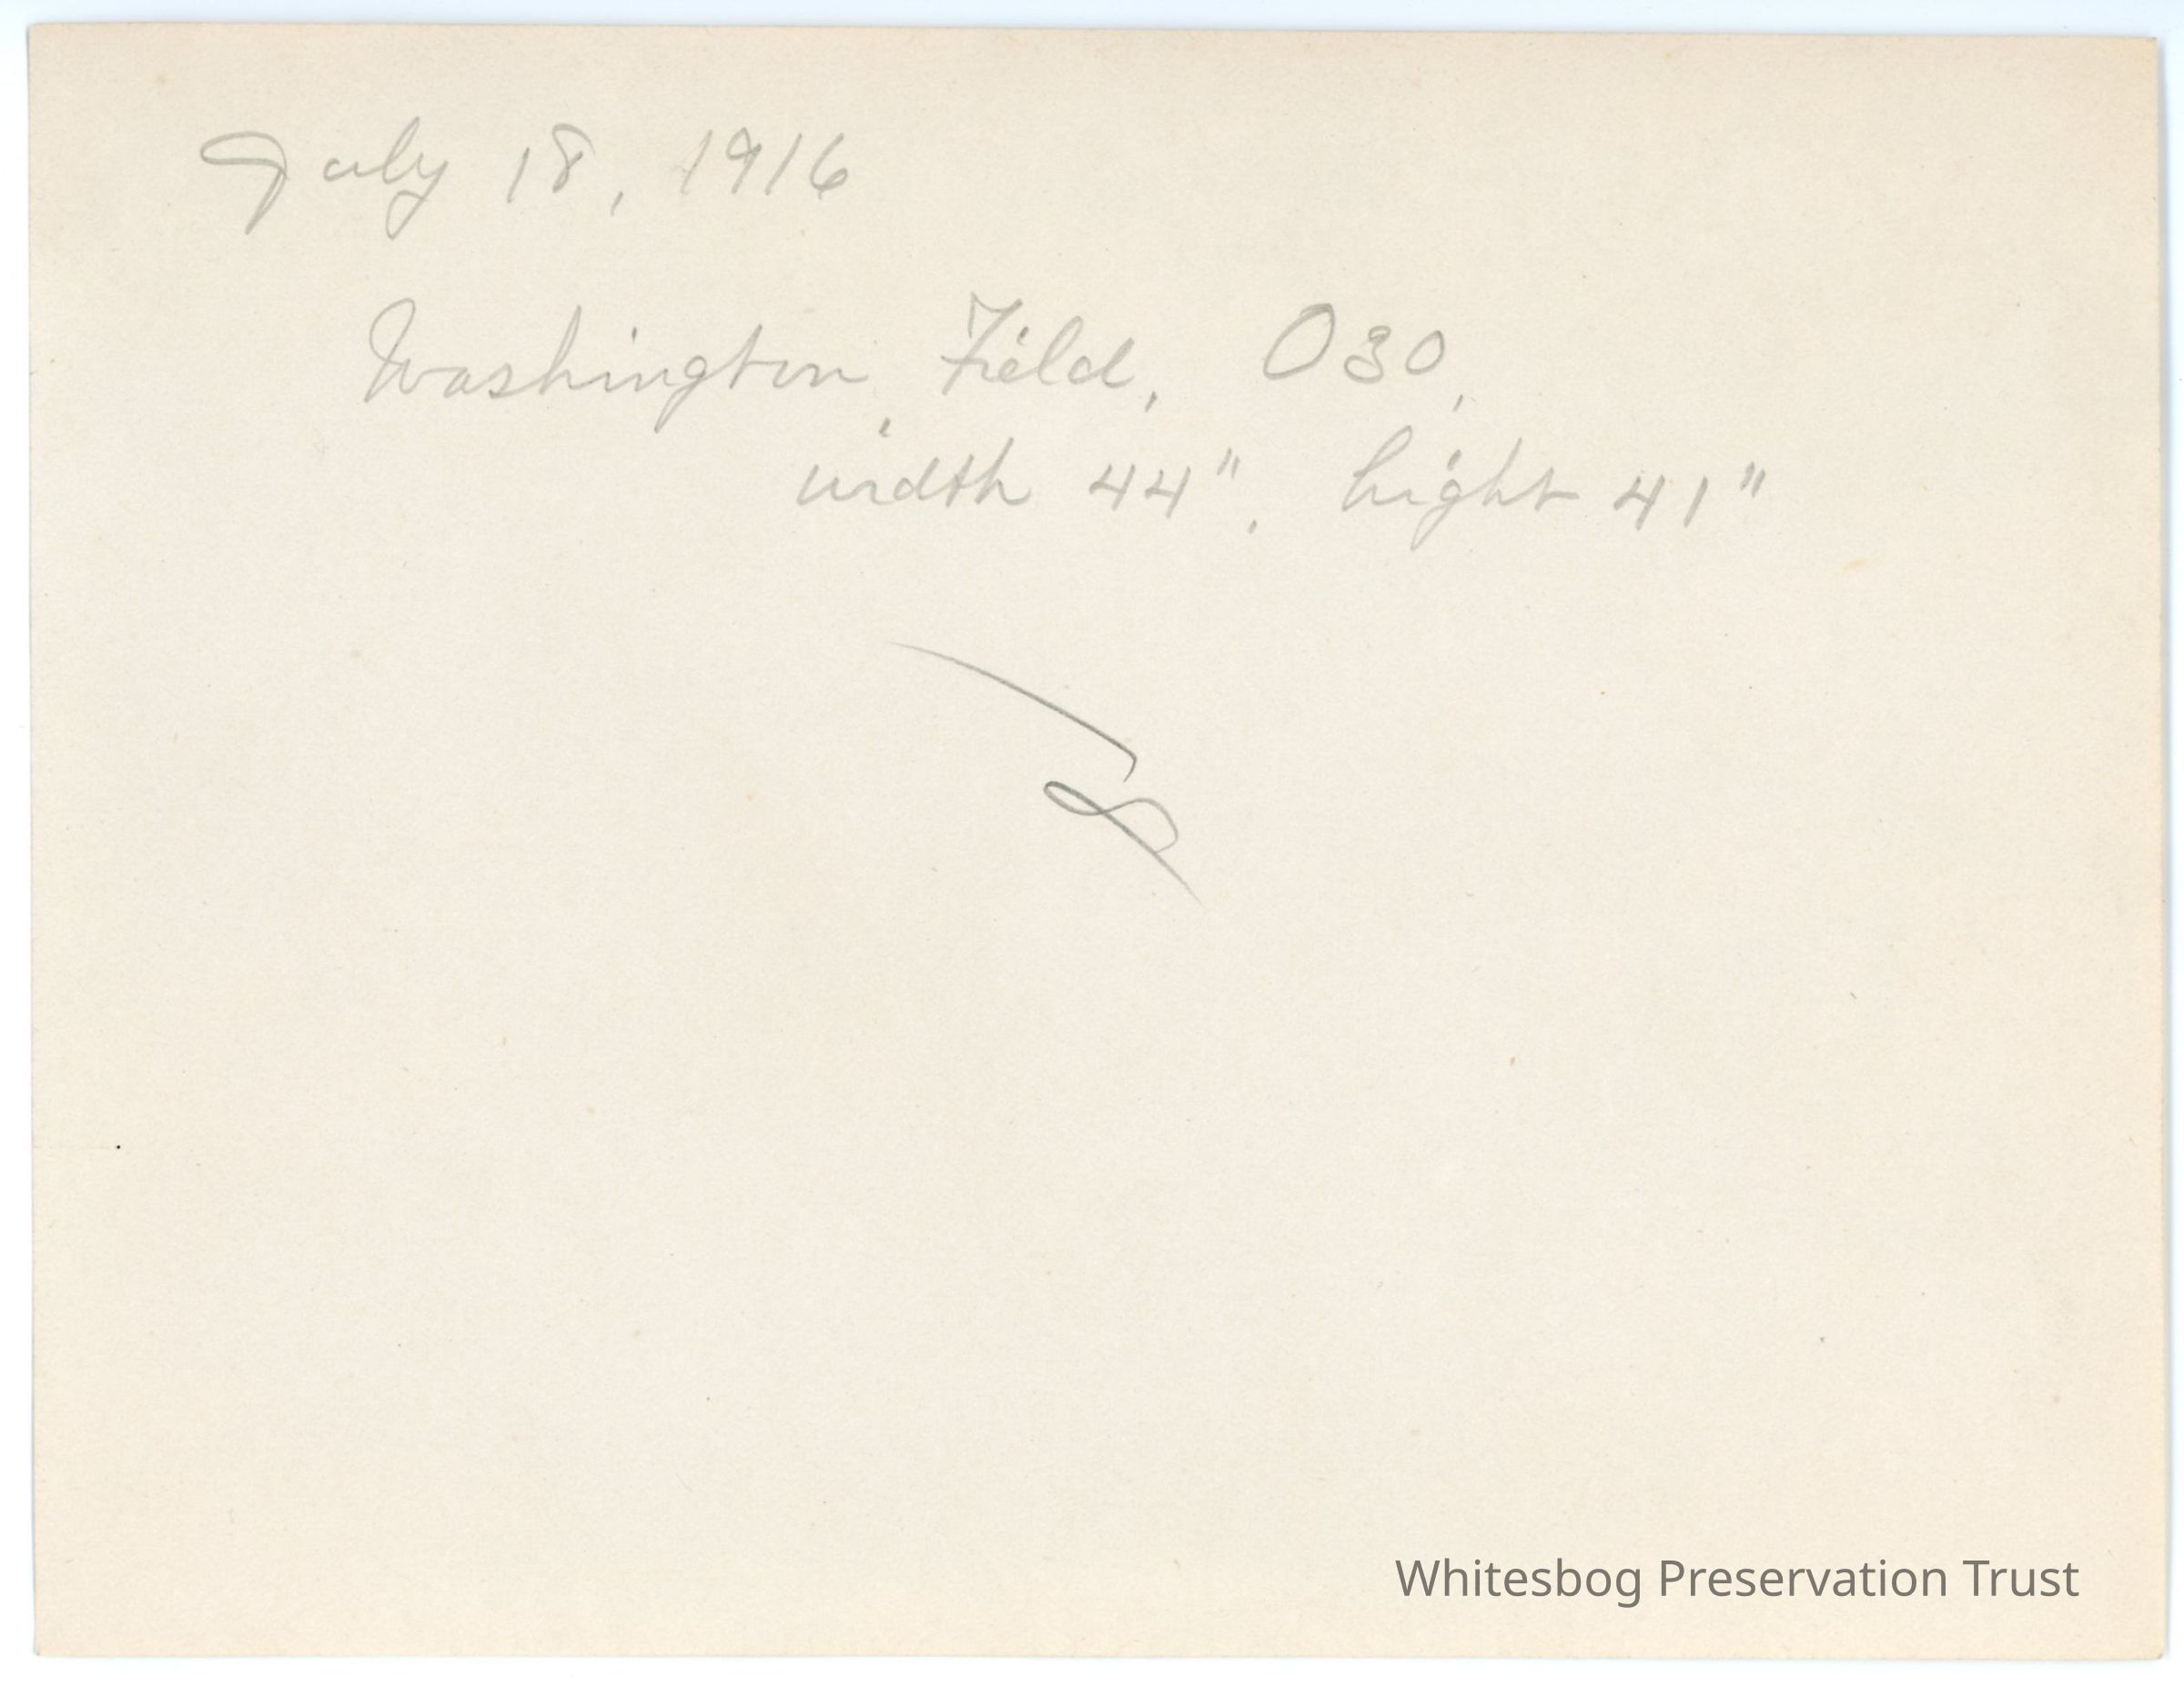 July 18, 1916
Washington Field, O30,
width 44", hight 41"
Whitesbog Preservation Trust